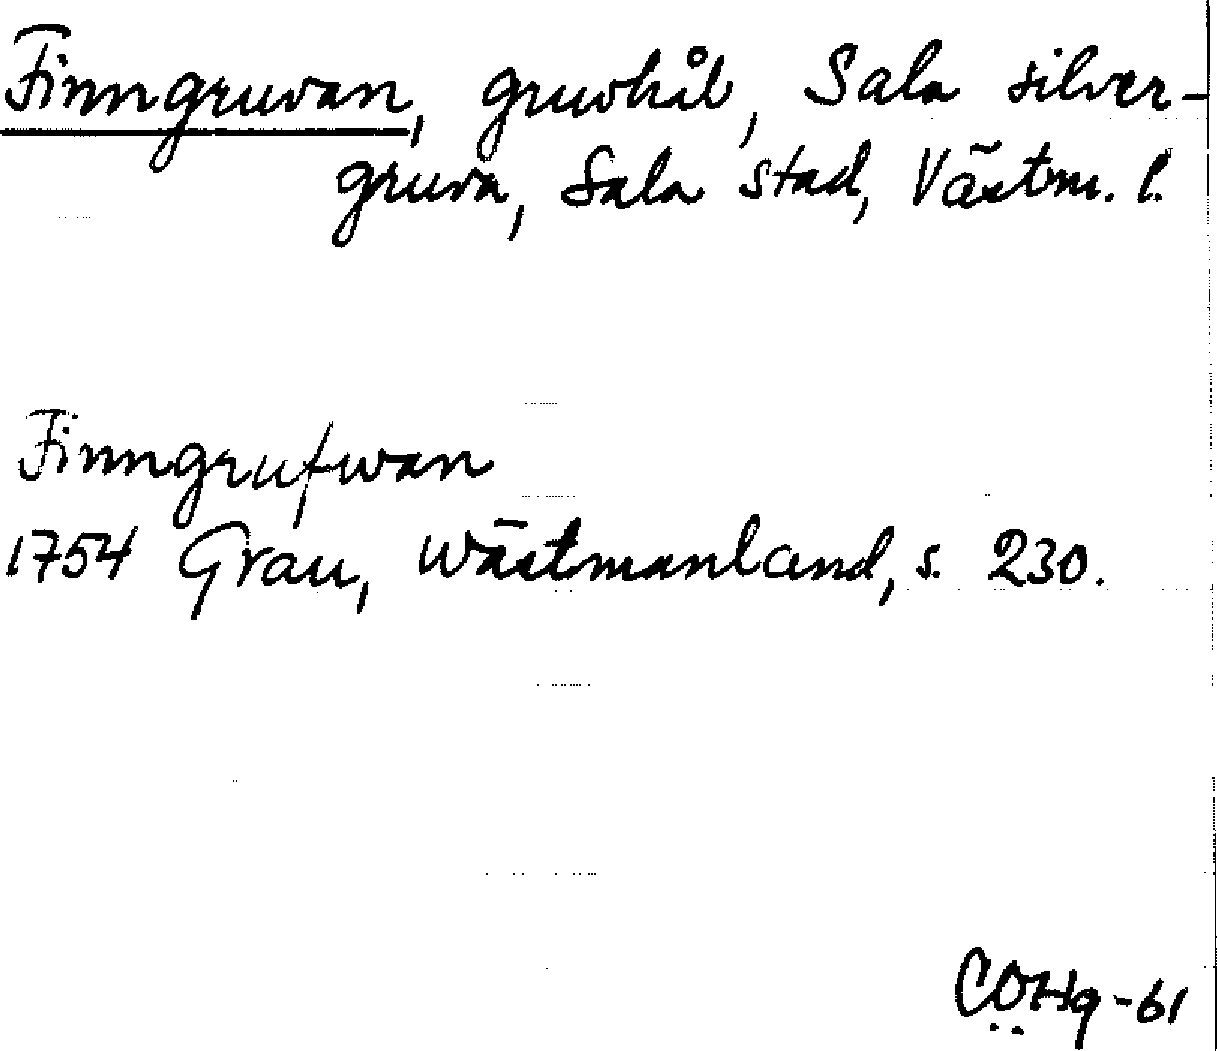 Finngruvan, gruvhål, Sala silver-
gruva, Sala stad, Västm. l.
Finngrufwan
1754 Grau, Wästmanland, s. 230.
COHg-61